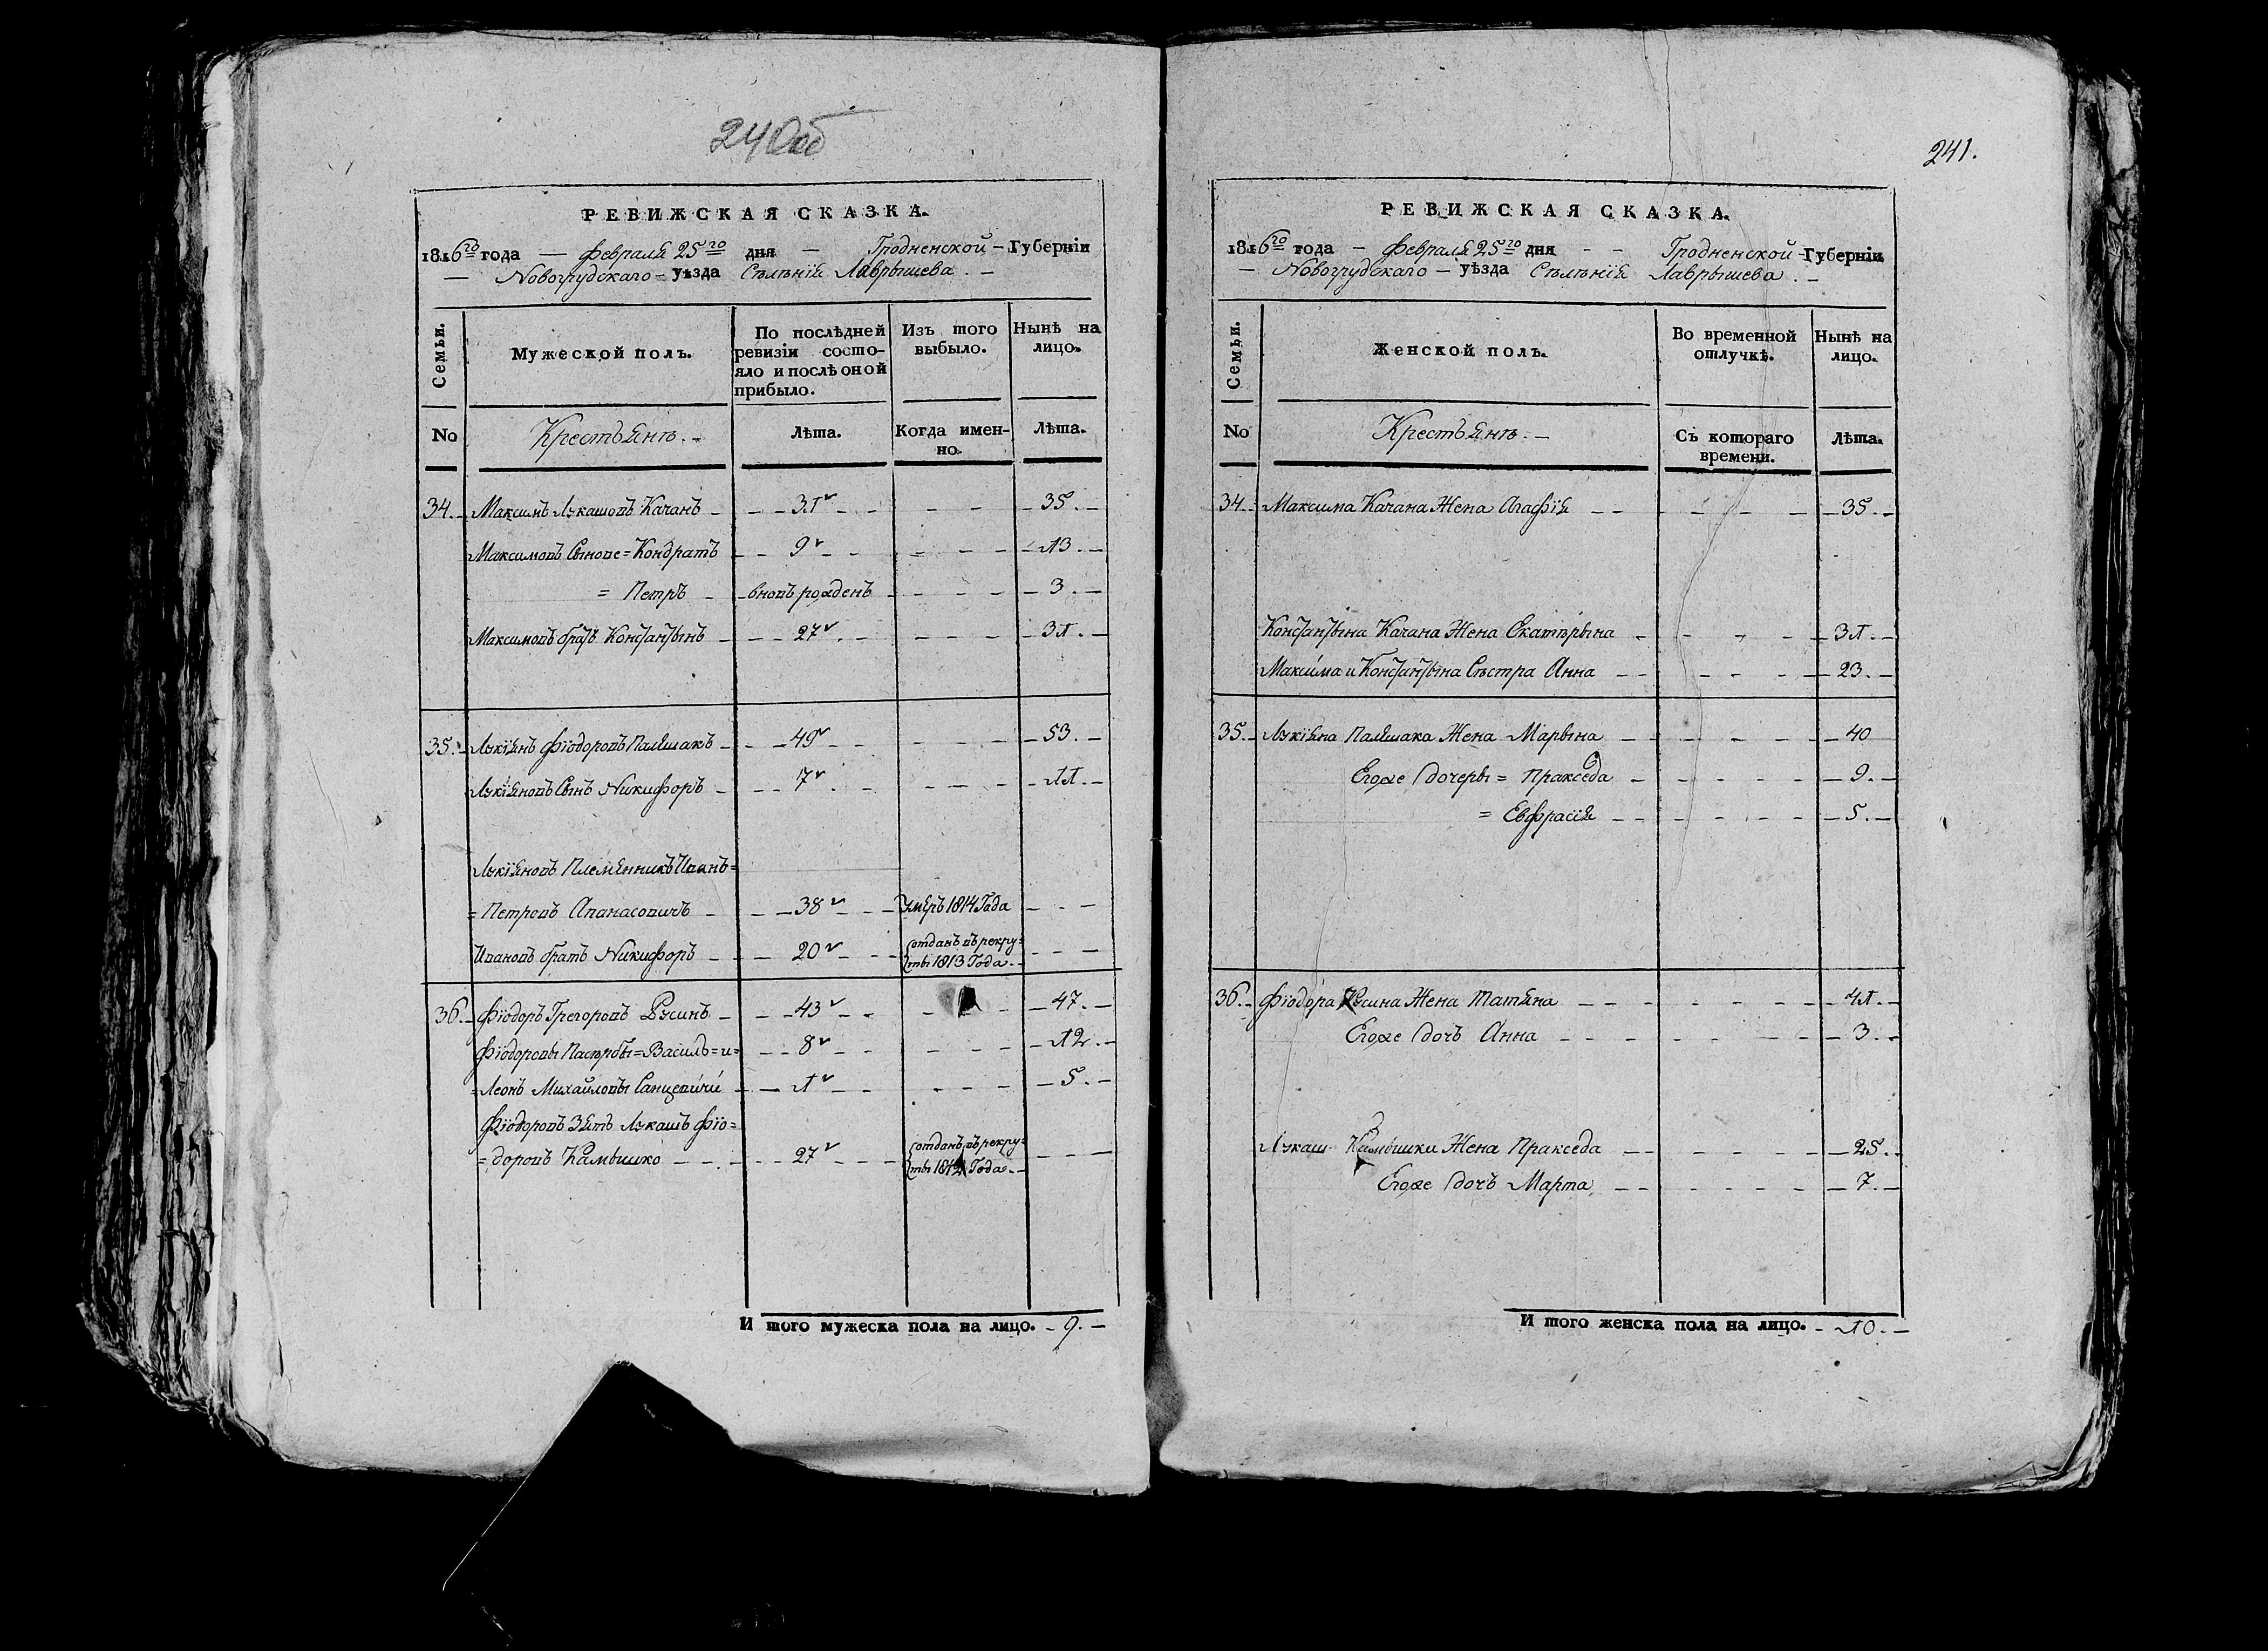 240об
РЕВИЖСКАЯ СКАЗКА.
1816го года — Февраля 25го дня — Гродненской — Губерніи
— Новогрудскаго — уѣзда Сѣленія Лаврышева. —
Семьи.
Мужеской полъ.
По послѣдней ревизіи состо-
яло и послѣ оной
прибыло.
Изъ того
выбыло.
Нынѣ на
лицо.
No
Крестьянъ. —
Лѣта.
Когда имен-
но.
Лѣта.
34. Максимъ Лукашовъ Качанъ — 31 — 35.
Максимовъ Сынове = Кондратъ — 9 — 13.
= Петръ — вновь рожденъ — 3.
Максимовъ братъ Константынъ — 27 — 31.
35. Лукіянъ Фіодоровъ Паляшакъ — 49 — 53.
Лукіяновъ Сынъ Никифоръ — 7 — 11.
Лукіяновъ Племянникъ Иванъ =
= Петровъ Апанасовичъ — 38 — Умеръ 1814 Года
Ивановъ братъ Никифоръ — 20 — отданъ въ рекру=
ты 1813 Года
36. Фіодоръ Грегоровъ Русинъ — 43 — 47.
Фіодоровы Пасербы = Василь = и = 8 — 12.
= Леонъ Михайловы Санцевичи — 1 — 5.
Фіодоровъ Зять Лукашъ Фіо=
= доровъ Камышко — 27 — отданъ въ рекру=
ты 1812 Года
И того мужеска пола на лицо. — 9. —
241.
РЕВИЖСКАЯ СКАЗКА.
1816го года — Февраля 25го дня — Гродненской — Губерніи
— Новогрудскаго — уѣзда Сѣленія Лаврышева. —
Семьи.
Женской полъ.
Во временной
отлучкѣ.
Нынѣ на
лицо.
No
Крестьянъ. —
Съ котораго
времени.
Лѣта.
34. Максима Качана Жена Агафія — 35.
Константына Качана Жена Екатерына — 31.
Максима и Константына Сестра Анна — 23.
35. Лукіяна Паляшака Жена Марына — 40
Егоже дочеры = Пракседа — 9.
= Евфрасія — 5.
36. Фіодора Русина Жена Татяна — 41.
Егоже дочь Анна — 3.
Лукаш Камышки Жена Пракседа — 25.
Егоже дочь Марта — 7.
И того женска пола на лицо. — 10. —